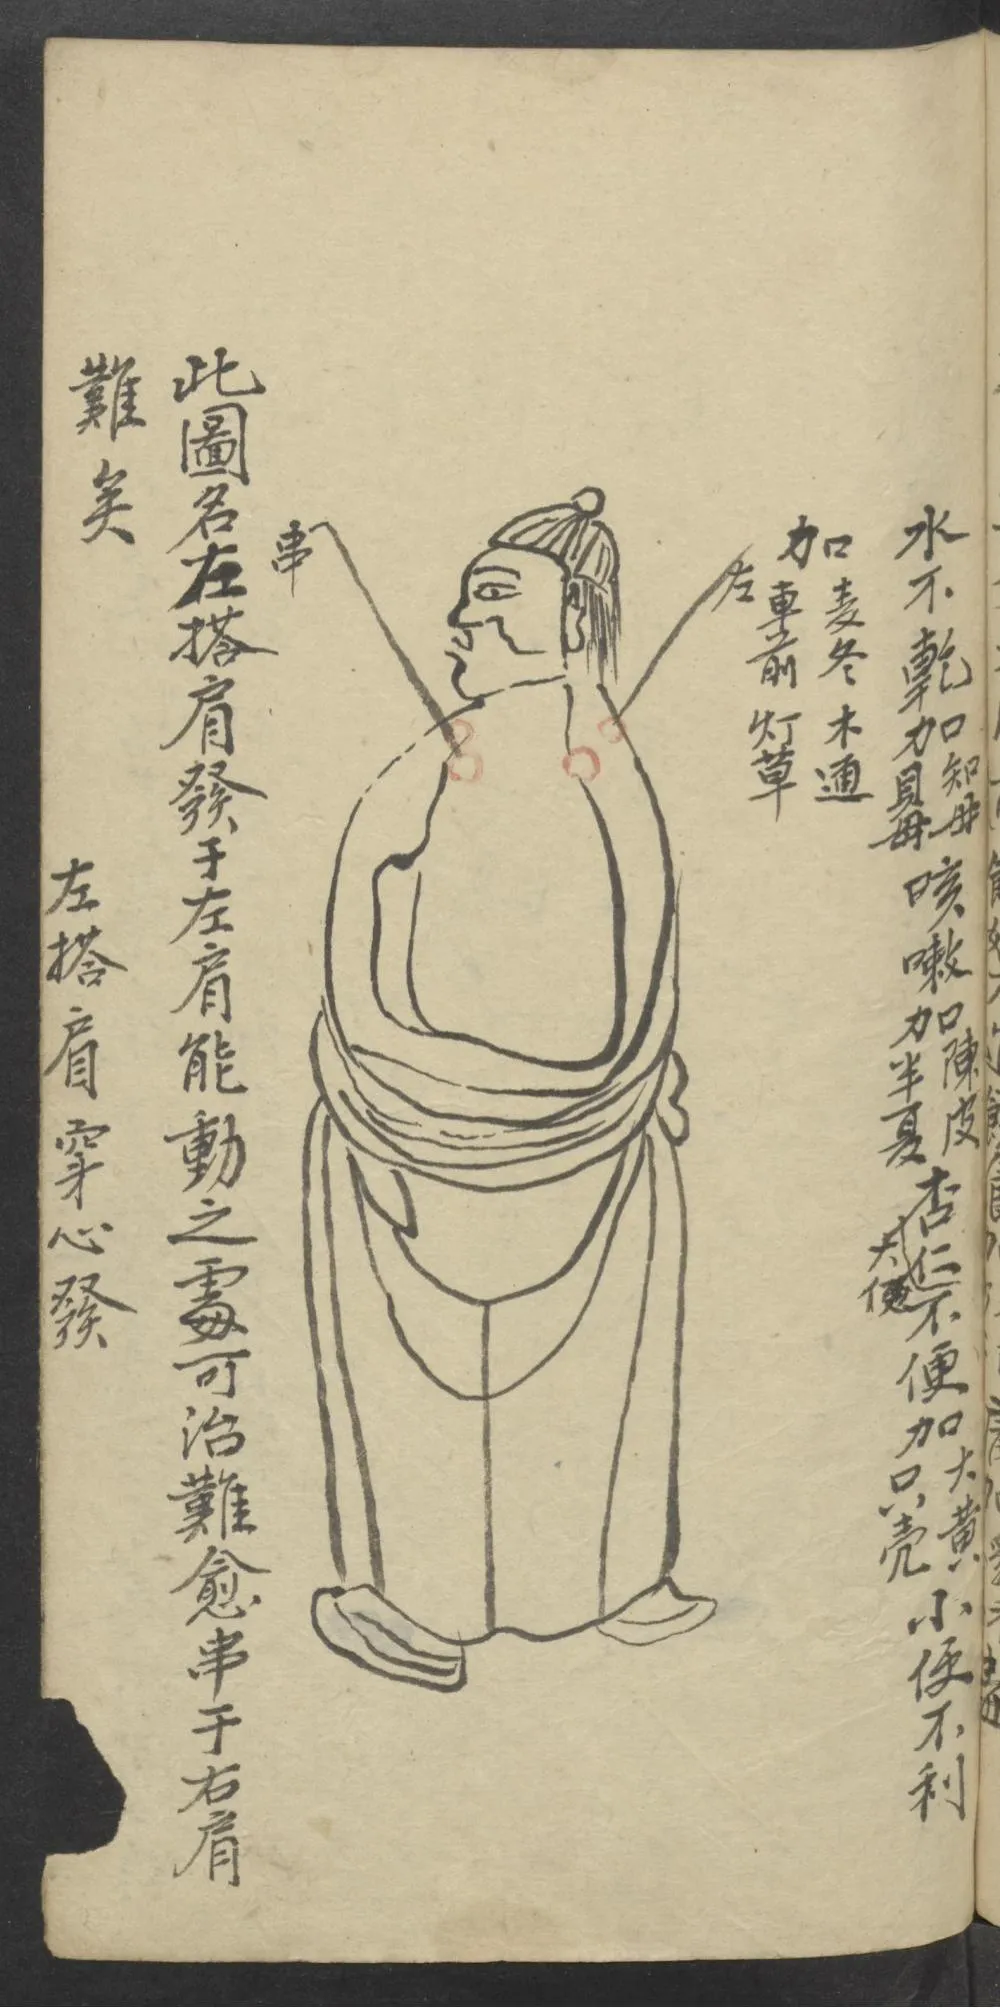 水不乾加知母
加貝母咳嗽加陳皮
加半夏杏仁不便加大黃
大便
加只壳小便不利
加麦冬木通
車前灯草
左
串
此圖名左搭肩發于左肩能動之處可治難愈串于右肩
難矣
左搭肩穿心發